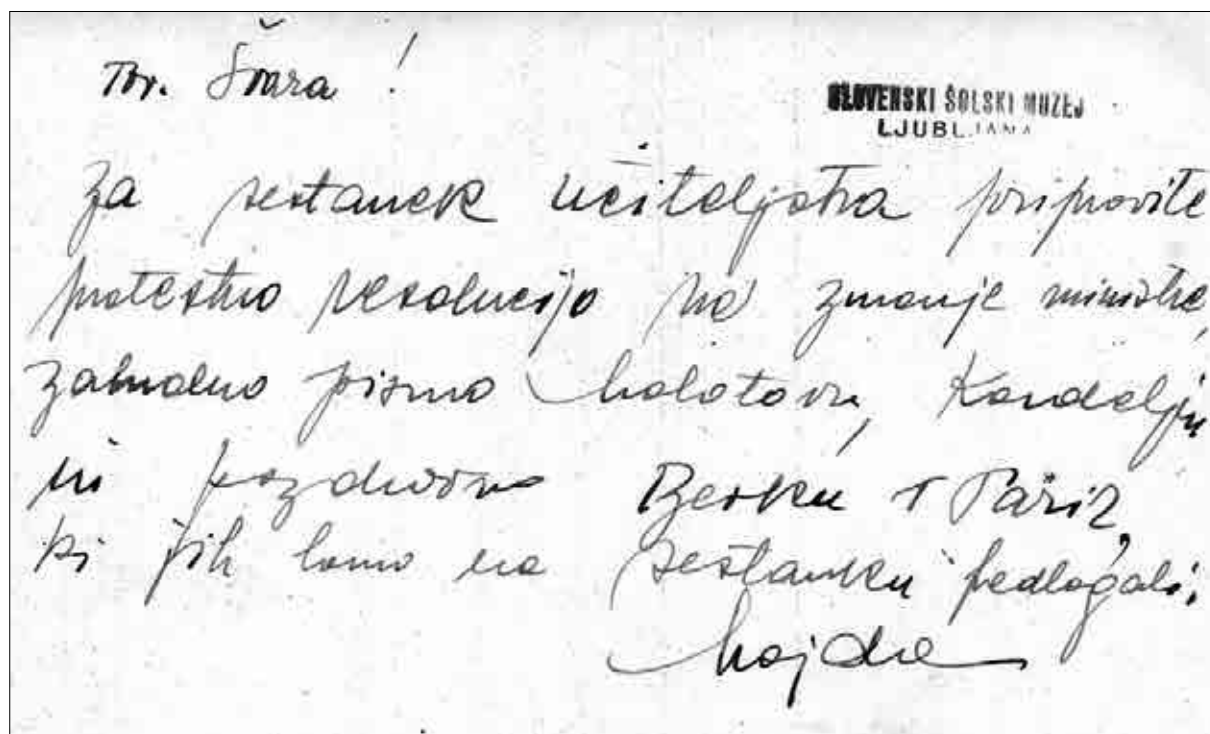 Tov. Švara!
SLOVENSKI ŠOLSKI MUZEJ
LJUBLJANA
Za sestanek učiteljstva pripravite
protestno resolucijo na zunanje ministre,
zahvalno pismo Molotovu, Kardelju
in pozdravno Bevku v Pariz,
ki jih bomo na sestanku predlagali.
Majda